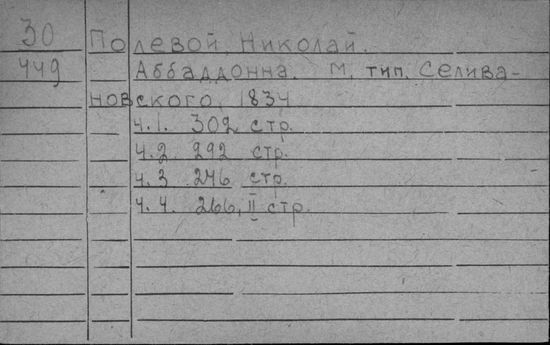 30 Полевой, Николай.
449 Аббаддонна. М, тип. Селива-
новского, 1834
ч.1. 302 стр.
ч.2. 292 стр.
ч.3 246 стр.
ч.4. 266, II стр.